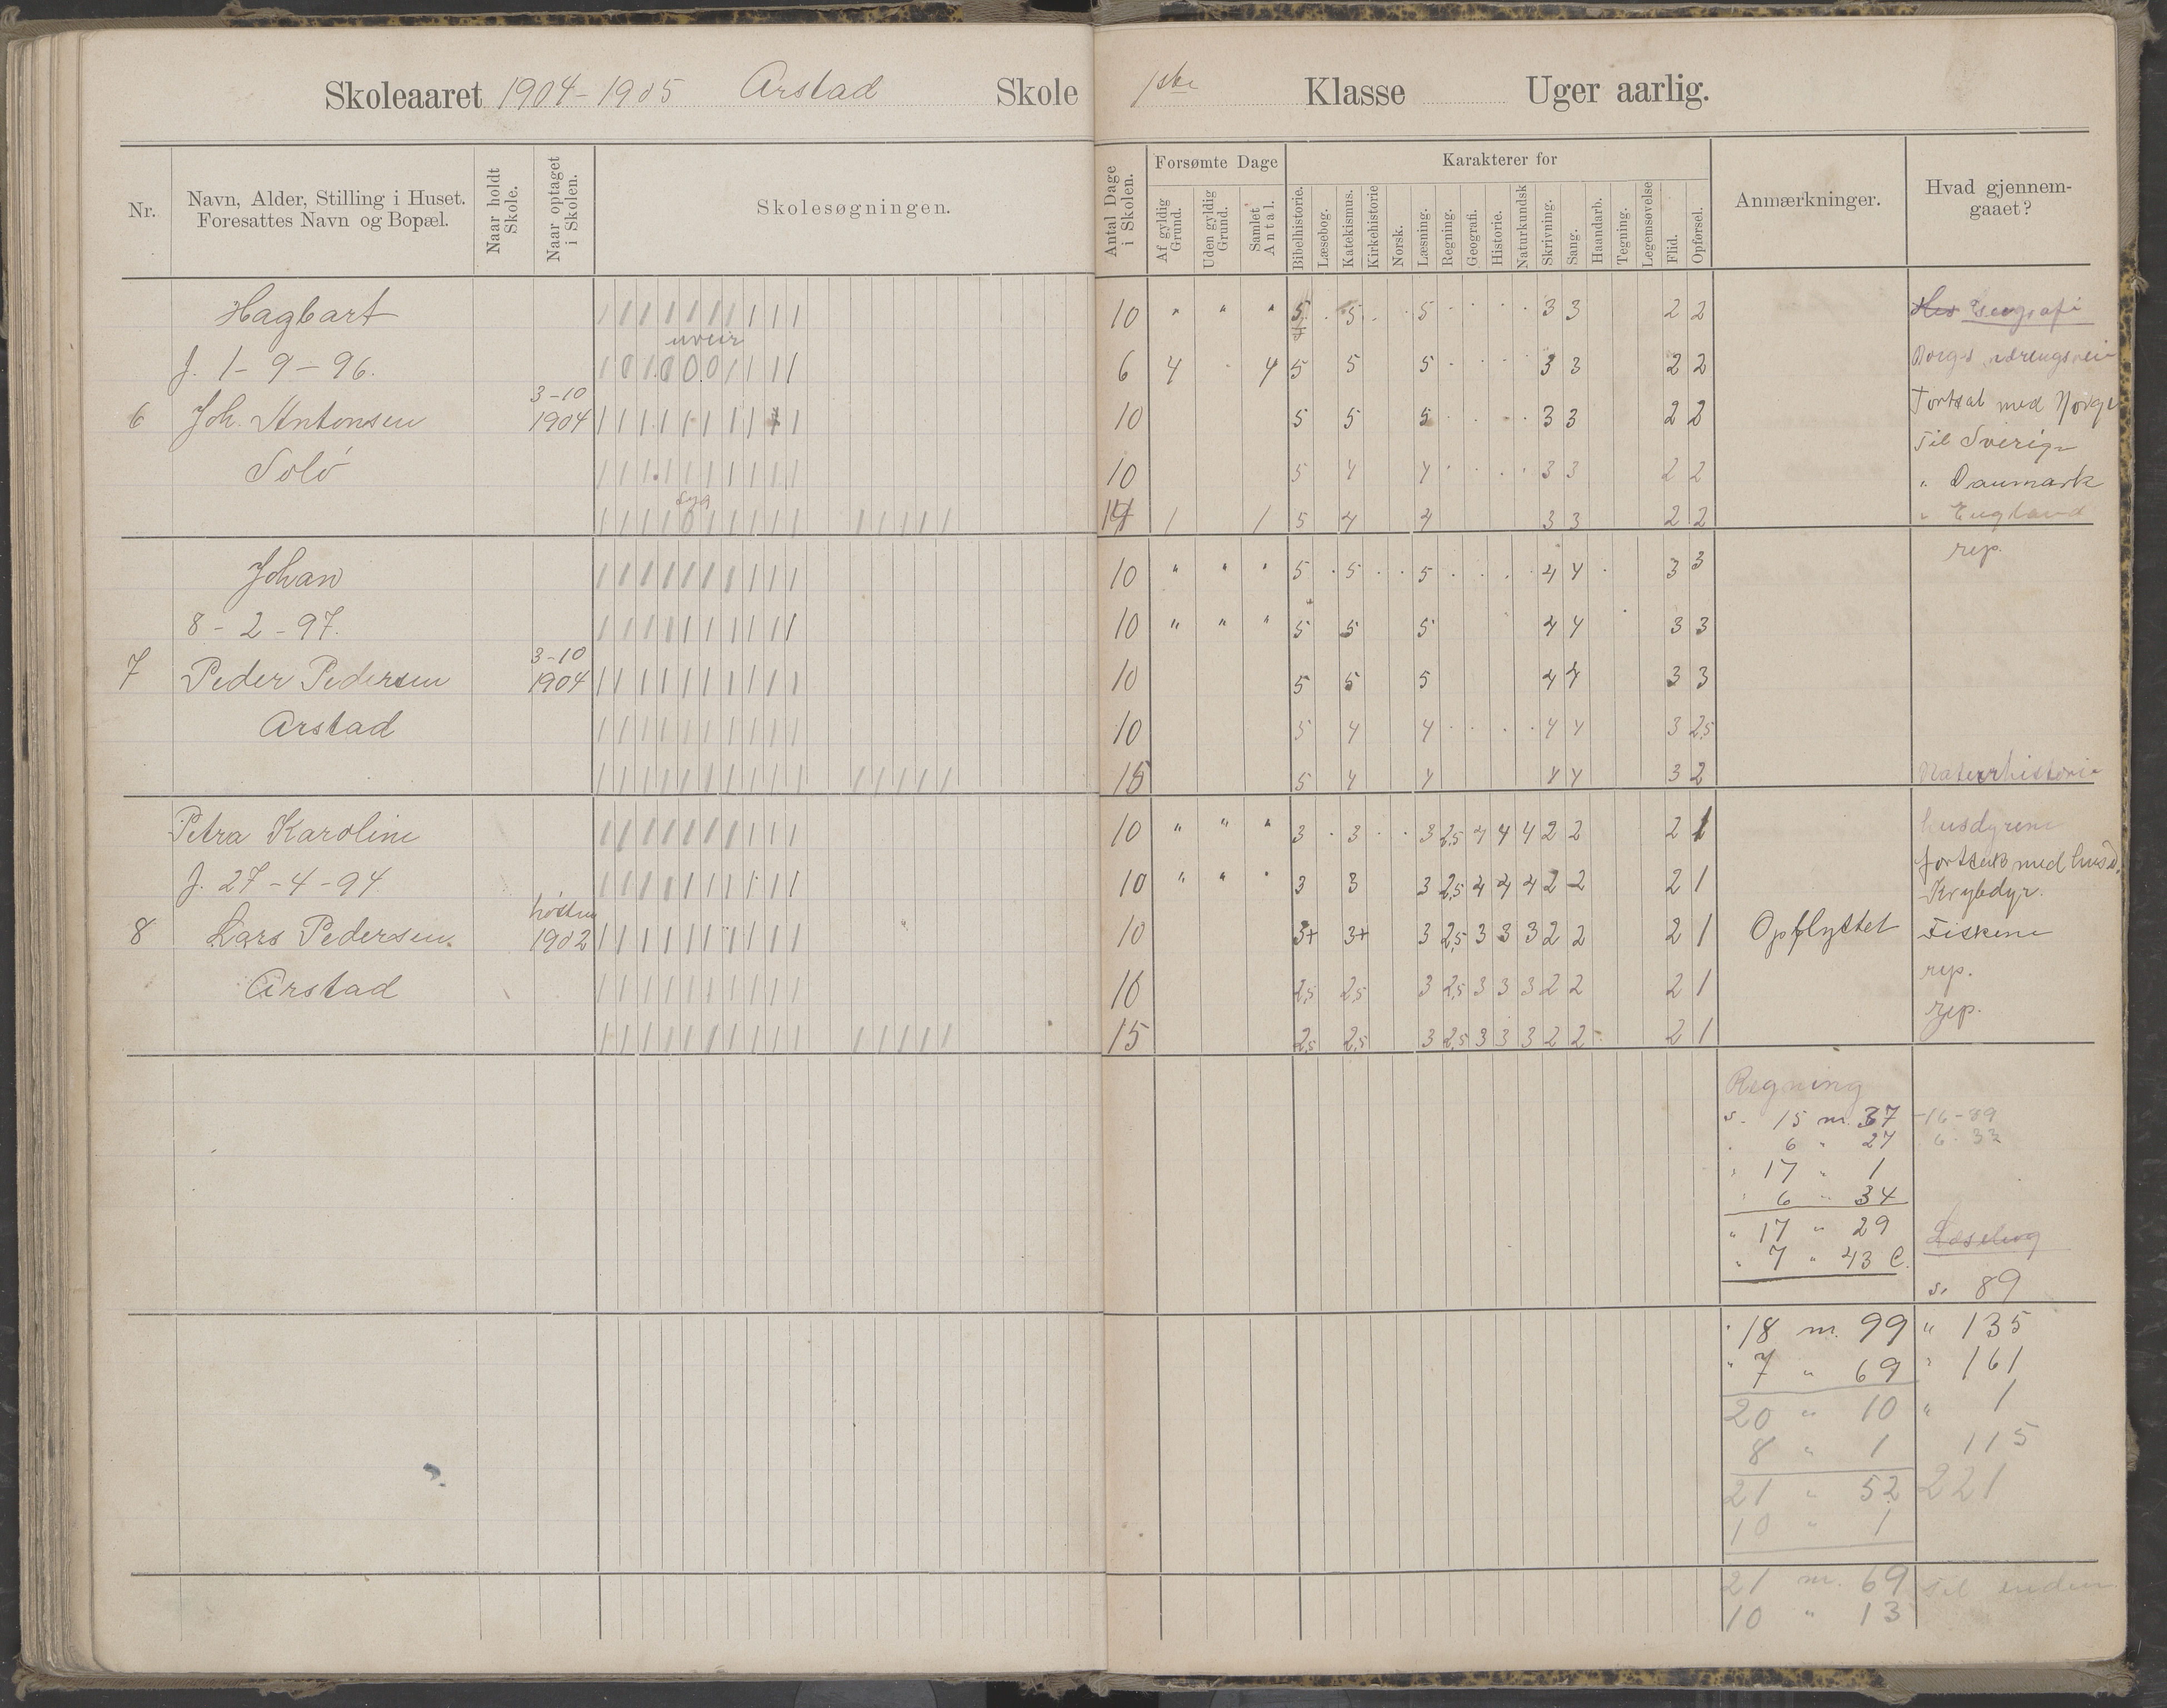 Skoleaaret 1904-1905 Arstad Skole 1ste Klasse Uger aarlig.
Nr.
Navn, Alder, Stilling i Huset.
Foresattes Navn og Bopæl.
Naar holdt
Skole.
Naar optaget
i Skolen.
Skolesøgningen.
Antal Dage
i Skolen.
Forsømte Dage
Af gyldig
Grund.
Uden gyldig
Grund.
Samlet
Antal.
Karakterer for
Bibelhistorie.
Læsebog.
Katekismus.
Kirkehistorie
Norsk.
Læsning.
Regning.
Geografi.
Historie.
Naturkundsk
Skrivning.
Sang.
Haandarb.
Tegning.
Legemsøvelse
Flid.
Opførsel.
Anmærkninger.
Hvad gjennem-
gaaet?
Hagbart / / / / / / / / / / 10 " " " 5 . 5 . . 5 . . . . 3 3 2 2 Geografi
uveir
f. 1-9-96. / 0 / 0 0 0 / / / / 6 4 . 4 5 5 5 . . . . 3 3 2 2
3-10
6 Joh. Antonsen 1904 / / / / / / / / / / 10 5 5 5 . . . . 3 3 2 2 Fortsat med Norge
til Sverige
Solö / / / / / / / / / / 10 5 4 4 . . . . 3 3 2 2 " Danmark
syg
/ / / / 0 / / / / / / / / / / 14 1 1 5 4 4 3 3 2 2 " England
rep.
Johan / / / / / / / / / / 10 " " " 5 . 5 . . 5 . . . . 4 4 . 3 3
8-2-97. / / / / / / / / / / 10 " " " 5 5 5 4 4 3 3
3-10
7 Peder Pedersen 1904 / / / / / / / / / / 10 5 5 5 4 4 3 3
Arstad / / / / / / / / / / 10 5 4 4 . . . . 4 4 3 2,5
/ / / / / / / / / / / / / / / 15 5 4 4 4 4 3 2 Naturhistorie
Petra Karoline / / / / / / / / / / 10 " " " 3 . 3 . . 3 2,5 4 4 4 2 2 2 1 husdyrene
fortsat med husd.
f. 27-4-94. / / / / / / / / / / 10 " " " 3 3 3 2,5 4 4 4 2 2 2 1 Krybdyr.
høsten
8 Lars Pedersen. 1902 / / / / / / / / / / 10 3+ 3+ 3 2,5 3 3 3 2 2 2 1 Opflyttet Fiskene
Arstad / / / / / / / / / / 10 2,5 2,5 3 2,5 3 3 3 2 2 2 1 rep.
/ / / / / / / / / / / / / / / 15 2,5 2,5 3 2,5 3 3 3 2 2 2 1 rep.
Regning
s. 15 m. 37 -16-89
. 6 " 27 6. 33
" 17 " 1
" 6 " 34
" 17 " 29 Læsebog
" 7 " 43 C.
s. 89
" 18 m. 99 " 135
" 7 " 69 " 161
20 " 10 " 1
8 " 1 115
21 " 52 221
10 " 1
21 m. 69 til enden
10 " 13